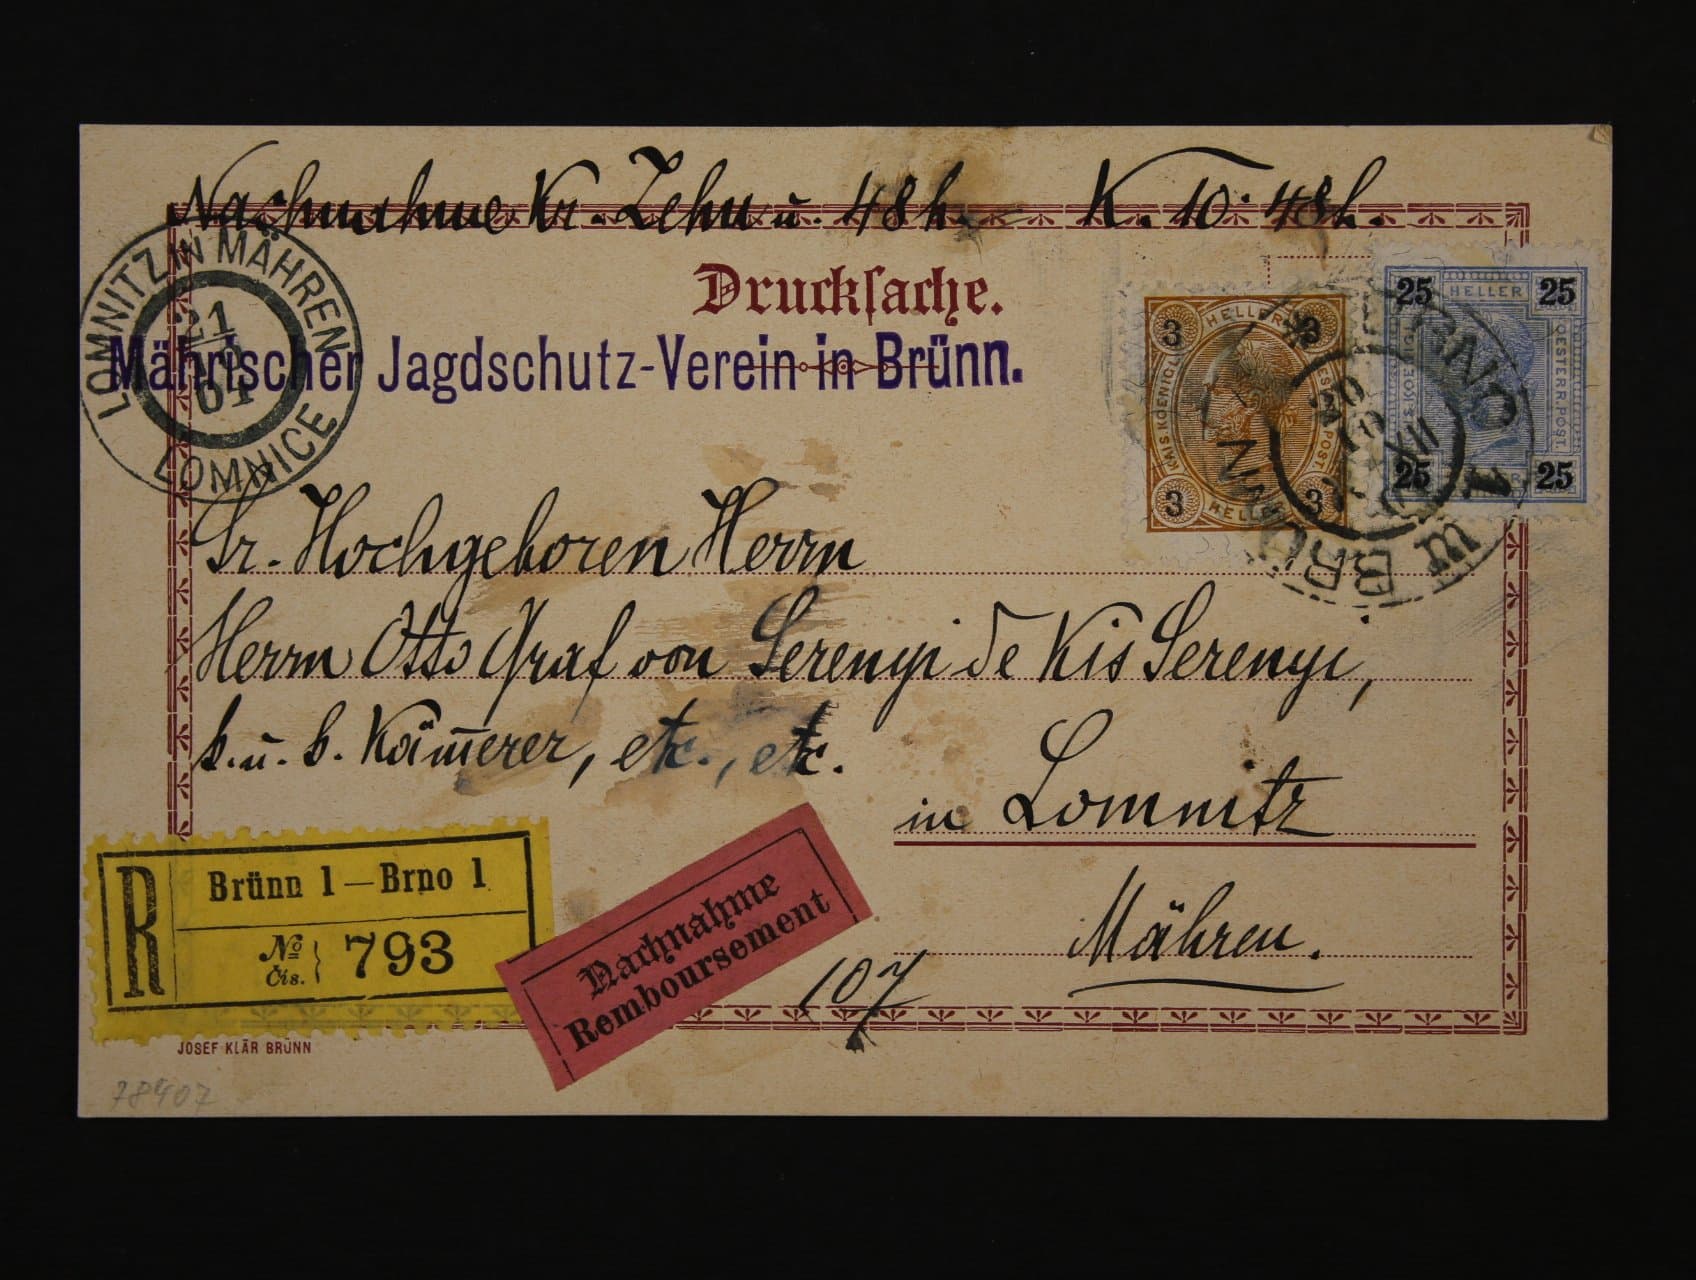 Nachnahme Kr. Zehn u. 48 h. K. 10·48h.
Drucksache.
Mährischer Jagdschutz-Verein in Brünn.
LOMNITZ IN MÄHREN
21
01
LOMNICE
3 HELLER 3
KAIS. KOENIGL. OESTERR. POST.
3 HELLER 3
25 HELLER 25
KAIS. KOENIGL. OESTERR. POST.
25 HELLER 25
BRNO 1
20
XII
BRÜNN
Sr. Hochgeboren Herrn
Herrn Otto Graf von Serenyi de Kis Serenyi,
k. u. k. Käm̅erer, etc., etc.
in Lomnitz
Mähren.
R
Brünn 1 — Brno 1
No
čis. } 793
Nachnahme
Remboursement
107
JOSEF KLÄR BRÜNN
78407